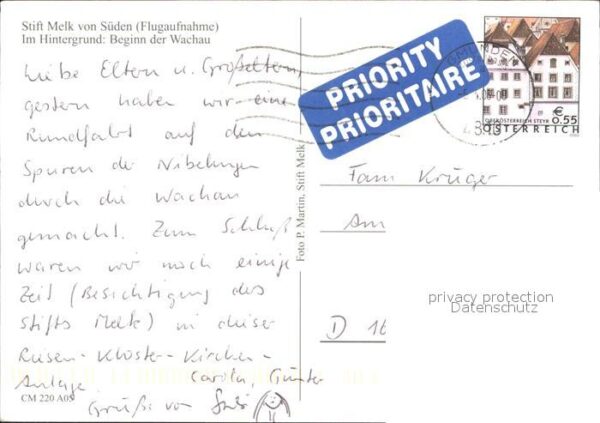 Stift Melk von Süden (Flugaufnahme)
Im Hintergrund: Beginn der Wachau
Liebe Eltern u. Großeltern,
gestern haben wir eine
Rundfahrt auf den
Spuren der Nibelungen
durch die Wachau
gemacht. Zum Schluß
waren wir noch einige
Zeit (Besichtigung des
Stifts Melk) in dieser
Riesen-Kloster-Kirchen-
Anlage.
Carola, Günter
Grüße von
CM 220 A05
Foto P. Martin, Stift Melk
PRIORITY
PRIORITAIRE
GMUNDEN
€ 0.55
OBERÖSTERREICH STEYR
ÖSTERREICH
Fam Krüger
Am
privacy protection
Datenschutz
D 16